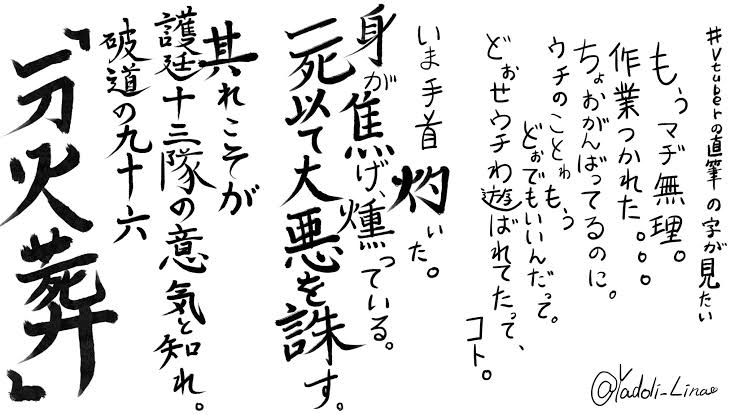 #Vtuberの直筆の字が見たい
もぅマヂ無理。
作業つかれた。。。
ちょおがんばってるのに。
ウチのことゎもぅ
どぉでもいいんだって。
どぉせウチゎ遊ばれてたって、
コト。
いま手首灼いた。
身が焦げ、燻っている。
一死以て大悪を誅す。
其れこそが
護廷十三隊の意気と知れ。
破道の九十六
「一刀火葬」
@Yadoli-Linae